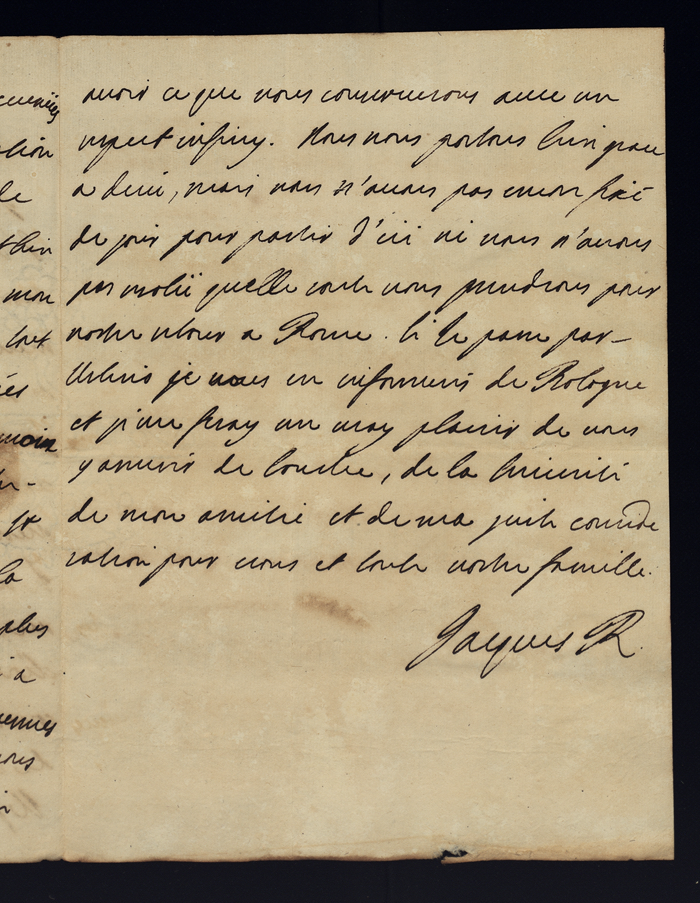 de
mon
tout
je
la
plus
a
avoir ce que nous conserverons avec un
respect infiny. Nous nous portons bien grace
a dieu, mais nous n'avons pas encor fixé
de jour pour partir d'ici ni nous n'avons
pas resolü quelle route nous prendrons pour
nostre retour a Rome. Si je passe par
Urbin je vous en informerai de Bologne
et je me feray un vray plaisir de vous
y assurer de bouche, de la sincerité
de mon amitié et de ma juste conside
ration pour vous et toute vostre famille.
Jacques R.